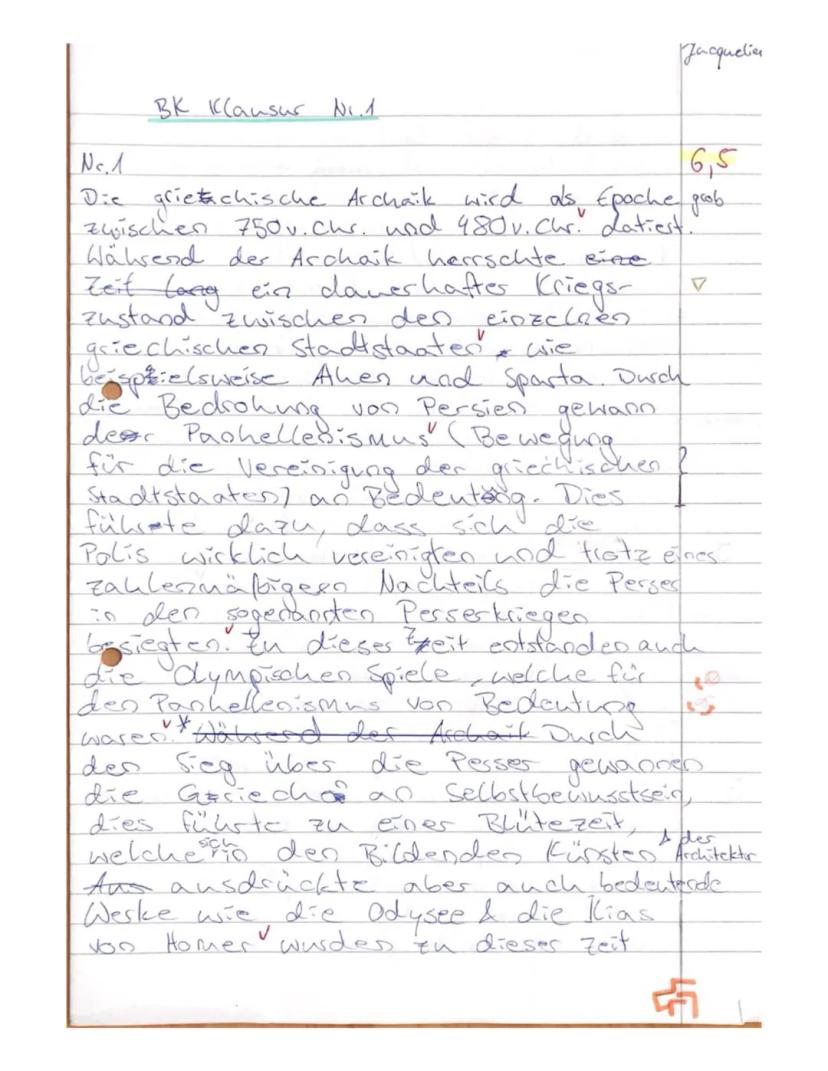 Jacquelin
BK Klausur Nr. 1
Nr. 1
6,5
Die griechische Archaik wird als Epoche grob
zwischen 750 v. Chr. und 480 v. Chr. datiert.
Während der Archaik herrschte eine
Zeit lang ein dauerhafter Kriegs-
zustand zwischen den einzelnen
griechischen Stadtstaaten, wie
beispielsweise Athen und Sparta. Durch
die Bedrohung von Persien gewann
der Panhellenismus (Bewegung
für die Vereinigung der griechischen
Stadtstaaten) an Bedeutung. Dies
führte dazu, dass sich die
Polis wirklich vereinigten und trotz eines
zahlenmäßigen Nachteils die Perser
in den sogenannten Perserkriegen
besiegten. Zu dieser Zeit entstanden auch
die Olympischen Spiele, welche für
den Panhellenismus von Bedeutung
waren. * Während der Archaik Durch
den Sieg über die Perser gewannen
die Griechen an Selbstbewusstsein,
dies führte zu einer Blütezeit,
welche sich in den Bildenden Künsten & der Architektur
ausdrückte aber auch bedeutende
Werke wie die Odysee & die Ilias
von Homer wurden zu dieser Zeit
1